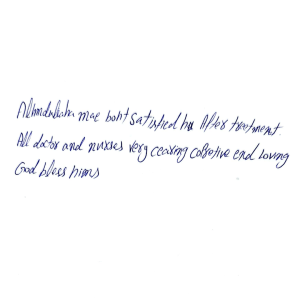 Alhmdulilaha mae boht satisfied hu After treatment.
All doctor and nurses very cearing coprative end loving
God bless hims